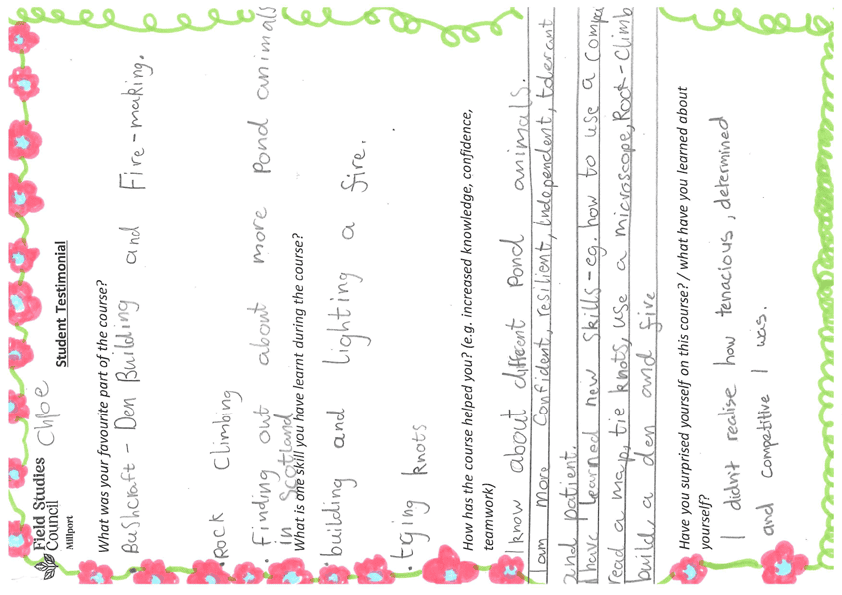 Field Studies
Council
Millport
Chloe
Student Testimonial
What was your favourite part of the course?
• Bushcraft - Den Building and Fire-making.
• Rock Climbing
• Finding out about more Pond animals
in Scotland
What is one skill you have learnt during the course?
• building and lighting a fire.
• tying knots
How has the course helped you? (e.g. increased knowledge, confidence,
teamwork)
I know about different Pond animals.
I am more Confident, resilient, independent, tolerant
and patient.
I have learned new skills - eg. how to use a compa
read a map, tie knots, use a microscope, Rock-Climb
build a den and fire
Have you surprised yourself on this course? / what have you learned about
yourself?
I didn't realise how tenacious, determined
and competitive I was.